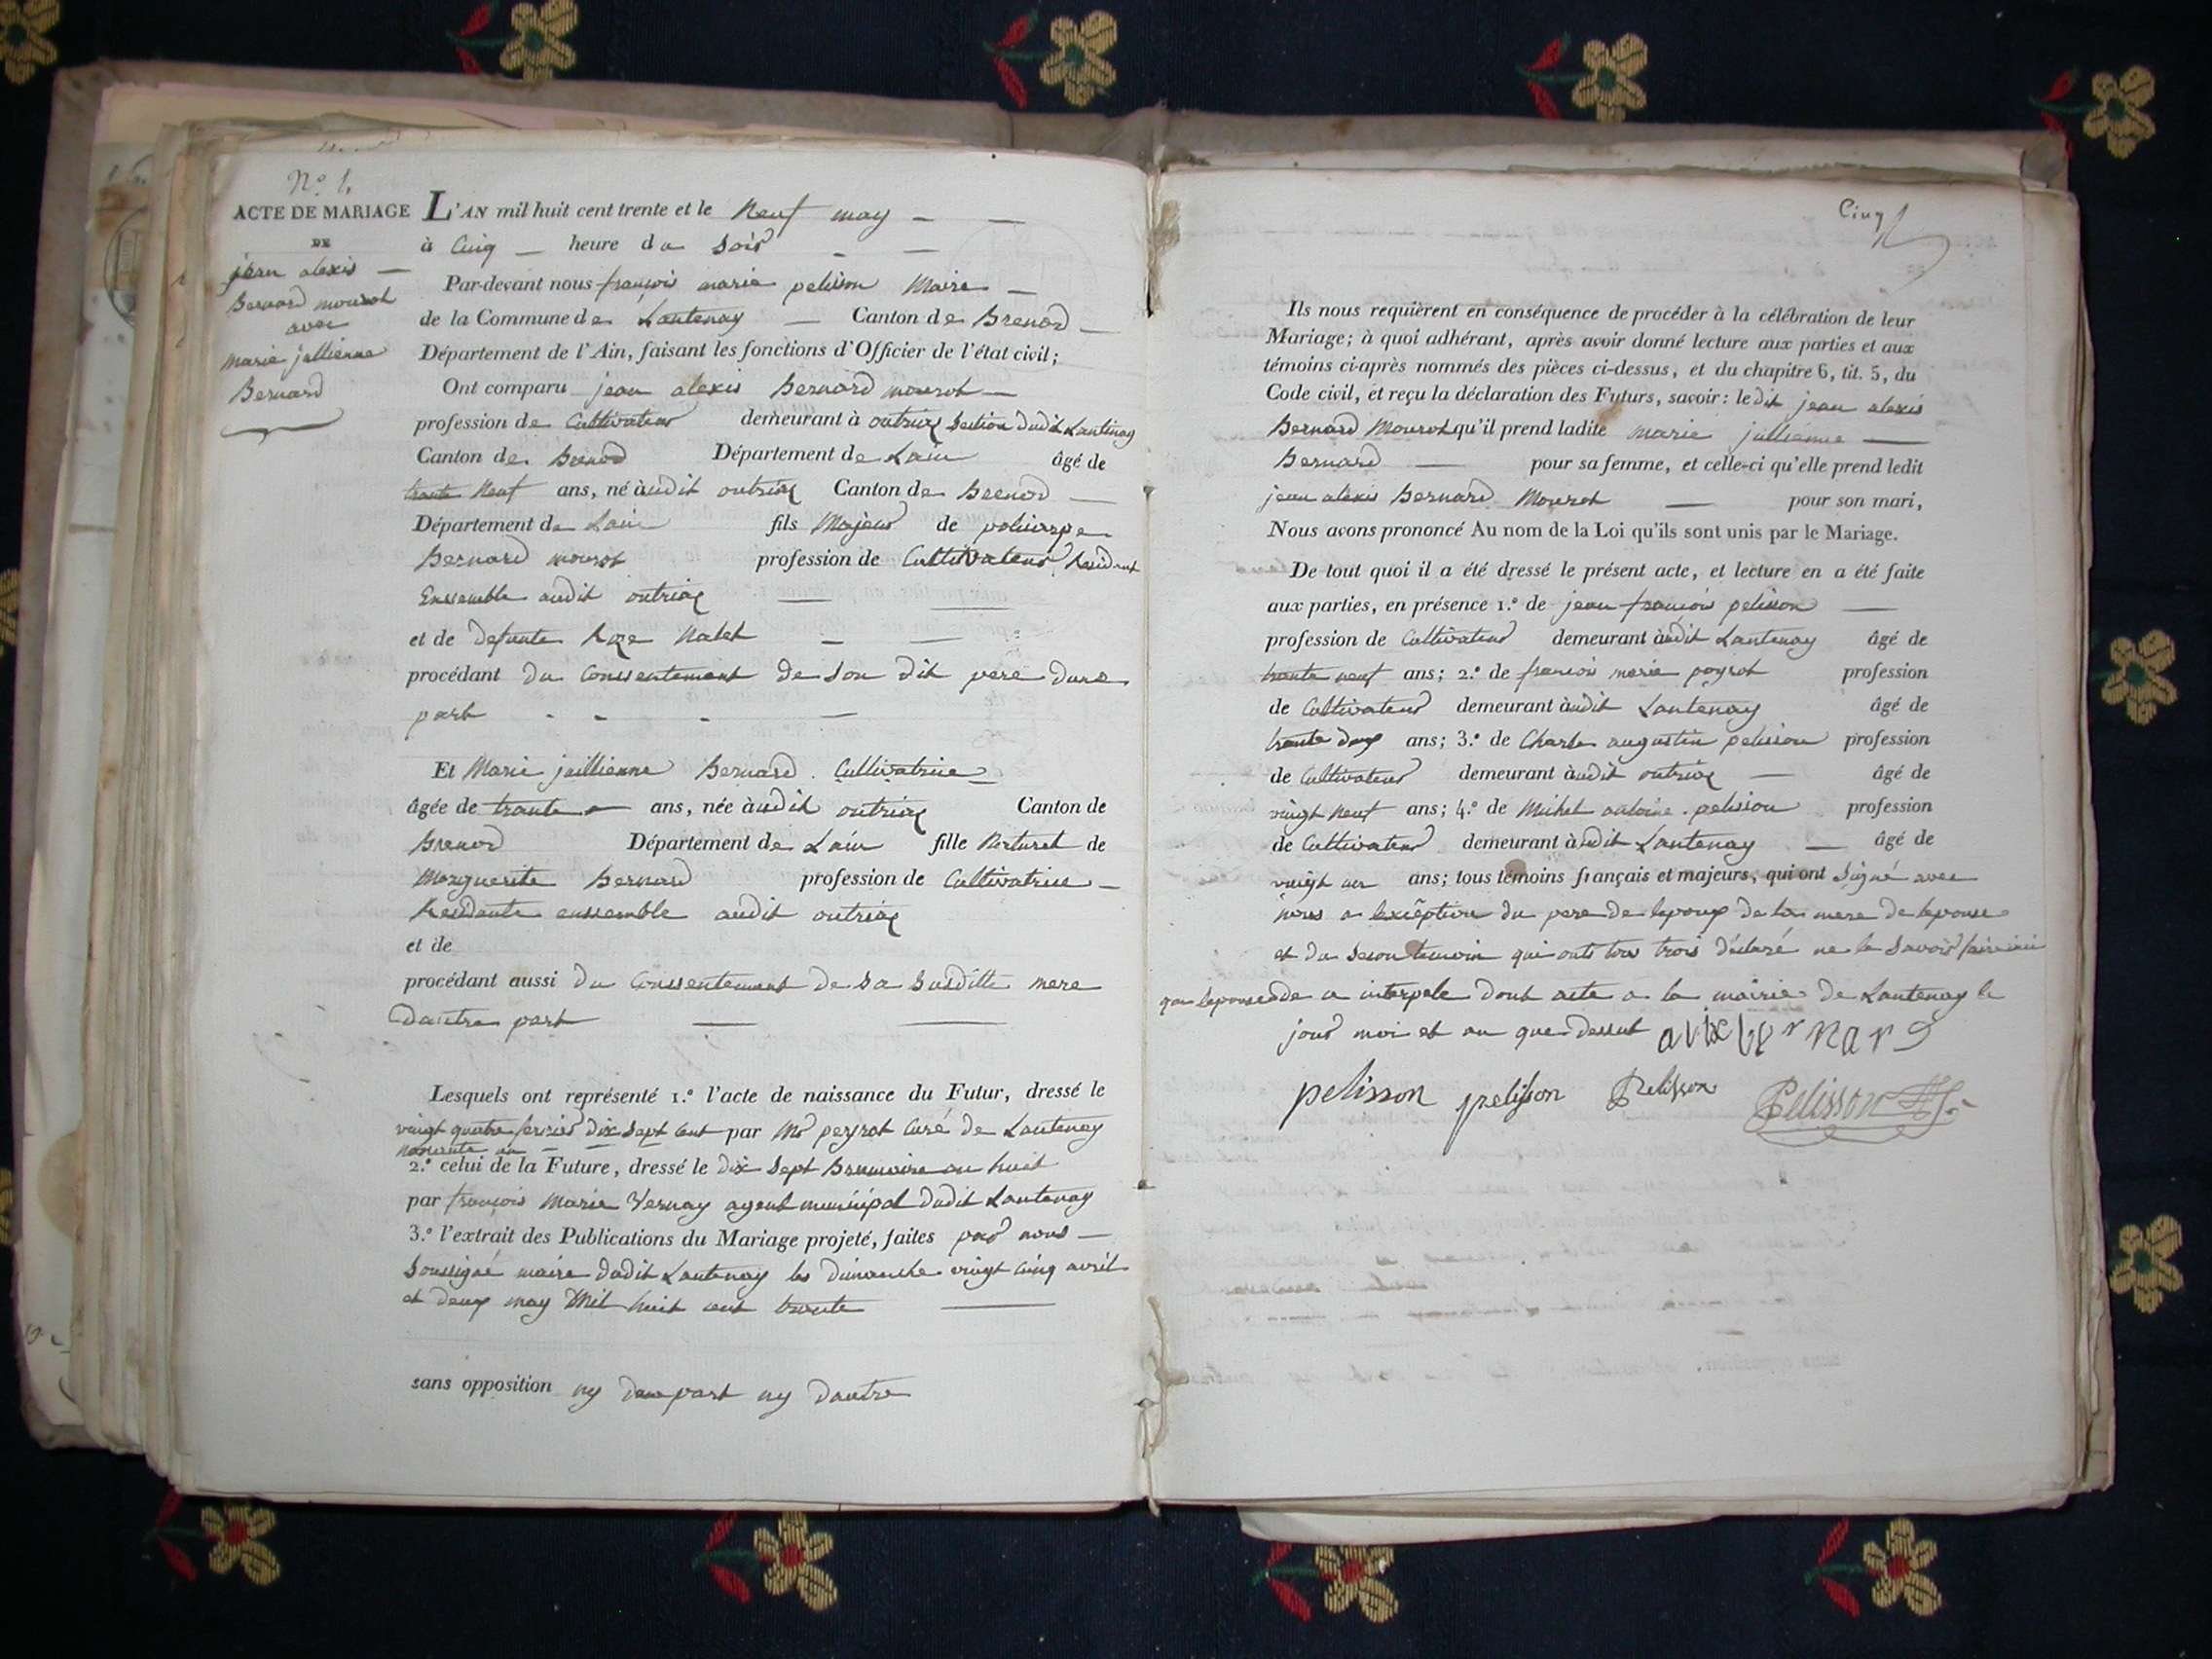 N.o 1.
ACTE DE MARIAGE
DE
jean alexis —
Bernard mourot
avec
marie jullienne
Bernard
L'AN mil huit cent trente et le Neuf may — —
à Cinq — heure du Soir — —
Par-devant nous françois marie pelisson Maire —
de la Commune de Lantenay — Canton de Brenod —
Département de l'Ain, faisant les fonctions d'Officier de l'état civil;
Ont comparu jean alexis Bernard mourot —
profession de Cultivateur demeurant à outriaz Section dudit Lantenay
Canton de Brenod Département de Lain âgé de
trante Neuf ans, né àudit outriaz Canton de Brenod —
Département de Lain fils Majeur de policarpe
Bernard mourot profession de Cultivateur Residant
Enssemble audit outriaz — —
et de defunte Roze Nalet — —
procédant du Conssentement de son dit pere dune
part - - - —
Et Marie jullienne Bernard . Cultivatrice —
âgée de trante — ans, née àudit outriaz Canton de
Brenod Département de Lain fille Naturel de
Marguerite Bernard profession de Cultivatrice —
Residante enssemble audit outriaz
et de
procédant aussi du Conssentement de sa susditte mere
Dautre part — —
Lesquels ont représenté 1.° l'acte de naissance du Futur, dressé le
vaingt quatre fevrier dix sept Cent par Mr peyrot Curé de Lantenay
nonante un — — —
2.° celui de la Future, dressé le dix Sept Brumaire an huit
par françois Marie Vernay agent municipal dudit Lantenay
3.° l'extrait des Publications du Mariage projeté, faites par nous —
Soussigné maire dudit Lantenay les dimanche vingt Cinq avril
et deux may Mil huit cent trente —
sans opposition ny dune part ny dautre
Cinq
Ils nous requièrent en conséquence de procéder à la célébration de leur
Mariage; à quoi adhérant, après avoir donné lecture aux parties et aux
témoins ci-après nommés des pièces ci-dessus, et du chapitre 6, tit. 5, du
Code civil, et reçu la déclaration des Futurs, savoir: ledit jean alexis
Bernard Mourot qu'il prend ladite marie jullienne —
Bernard — pour sa femme, et celle-ci qu'elle prend ledit
jean alexis Bernard Mourot — pour son mari,
Nous avons prononcé Au nom de la Loi qu'ils sont unis par le Mariage.
De tout quoi il a été dressé le présent acte, et lecture en a été faite
aux parties, en présence 1.° de jean françois pelisson —
profession de Cultivateur demeurant àudit Lantenay âgé de
trante neuf ans; 2.° de françois marie peyrot profession
de Cultivateur demeurant àudit Lantenay âgé de
trante deux ans; 3.° de Charles augustin pelisson profession
de Cultivateur demeurant àudit outriaz — âgé de
vingt neuf ans; 4.° de Michel antoine pelission profession
de Cultivateur demeurant àudit Lantenay — âgé de
vingt un ans; tous témoins français et majeurs, qui ont Signé avec
nous a lexception du pere de lepoux de la mere de lepouse
et du secon temoin qui onts tous trois déclaré ne le Savoir faire
que lepouse de ce interpele dont acte a la mairie de Lantenay le
jour moi et an que dessut alixbernard
pelisson pelisson Pelisson Pelisson